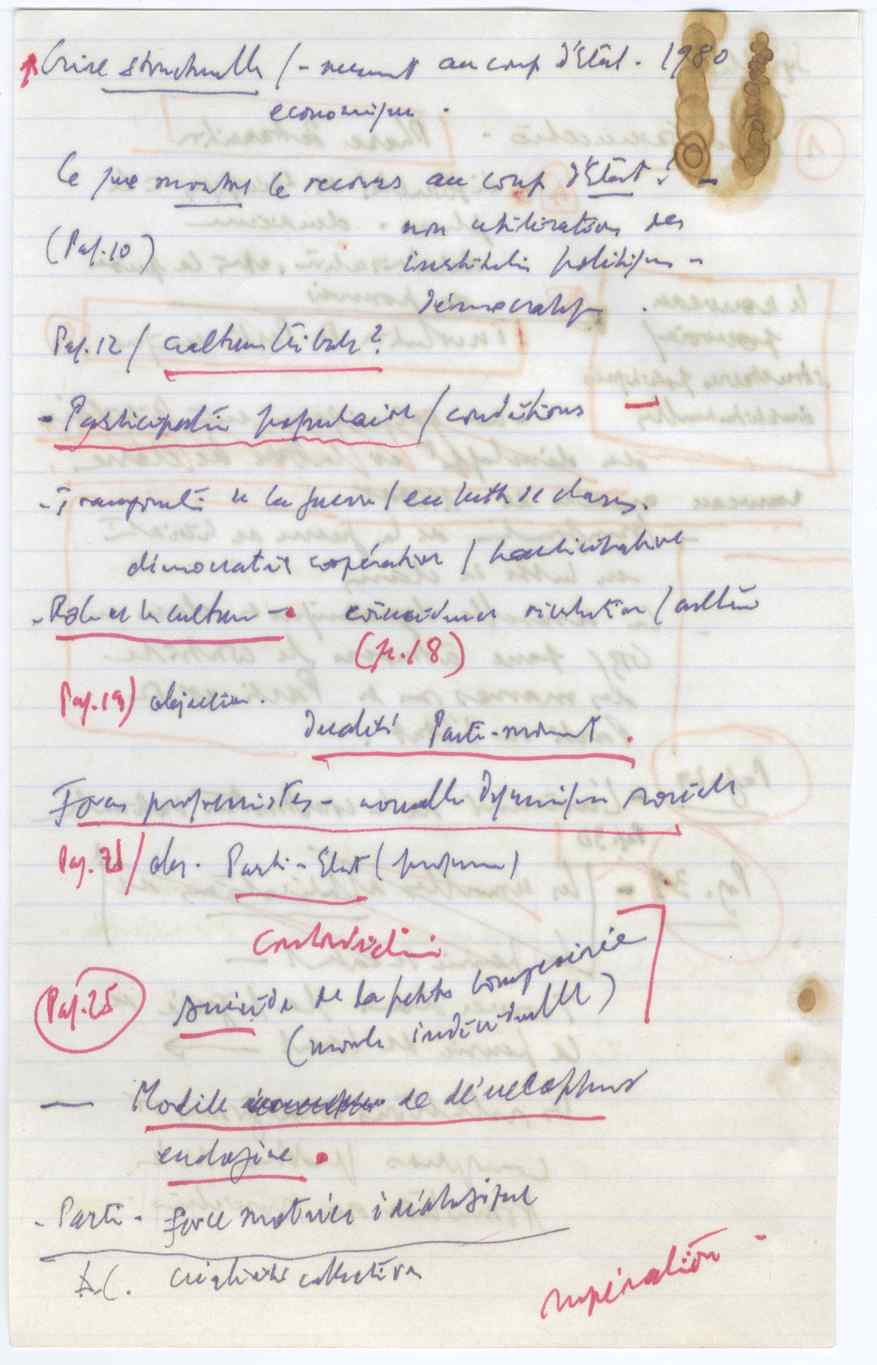 Crise structurelle / - recours au coup d'État. 1980
economique.
Ce que montre le recours au coup d'État? -
(Pag.10) non utilisation des
institutions politiques -
démocratiques.
Pag.12 / culture tribale?
- Participation populaire / conditions
- Transformation de la guerre / en lutte de classes.
démocratie coopérative / participative
- Role de la culture - coincidence révolution / culture
(p.18)
Pag.19) objection.
Dualité Parti-mouvt.
Forces progressistes - nouvelle dynamique sociale
Pag. / obs. Parti-Etat (
Contradiction
Pag.25 suicide de la petite bourgeoisie
(morale individuelle)
— Modèle de développement
endogène.
- Parti - force motrice idéologique
créativité collective